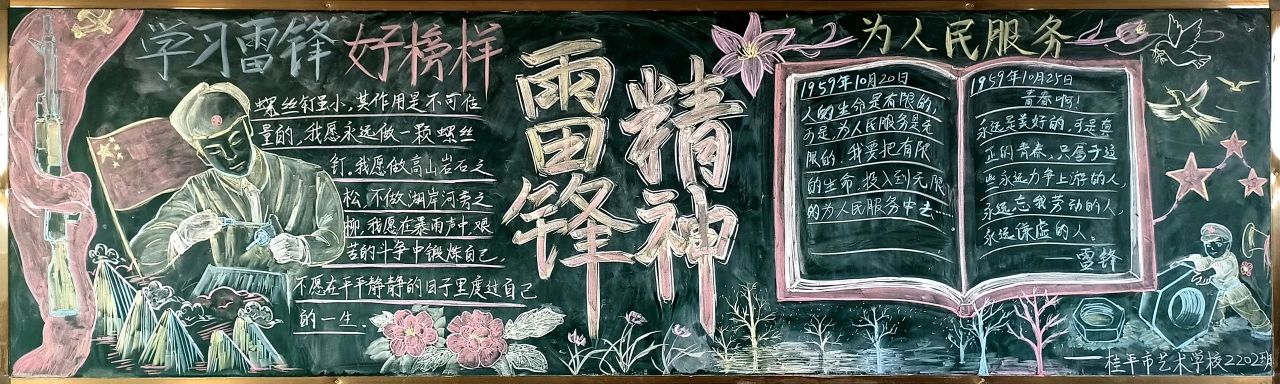 学习雷锋 好榜样
螺丝钉虽小,其作用是不可估
量的,我愿永远做一颗螺丝
钉。我愿做高山岩石之
松,不做湖岸河旁之
柳。我愿在暴雨声中艰
苦的斗争中锻炼自己,
不愿在平平静静的日子里度过自己
的一生。
雷锋
精神
为人民服务
1959年10月20日
人的生命是有限的,
可是,为人民服务是无
限的,我要把有限
的生命,投入到无限
的为人民服务中去……
1959年10月25日
青春啊!
永远是美好的,可是真
正的青春,只属于这
些永远力争上游的人,
永远忘我劳动的人,
永远谦虚的人。
——雷锋
——桂平市艺术学校2202班